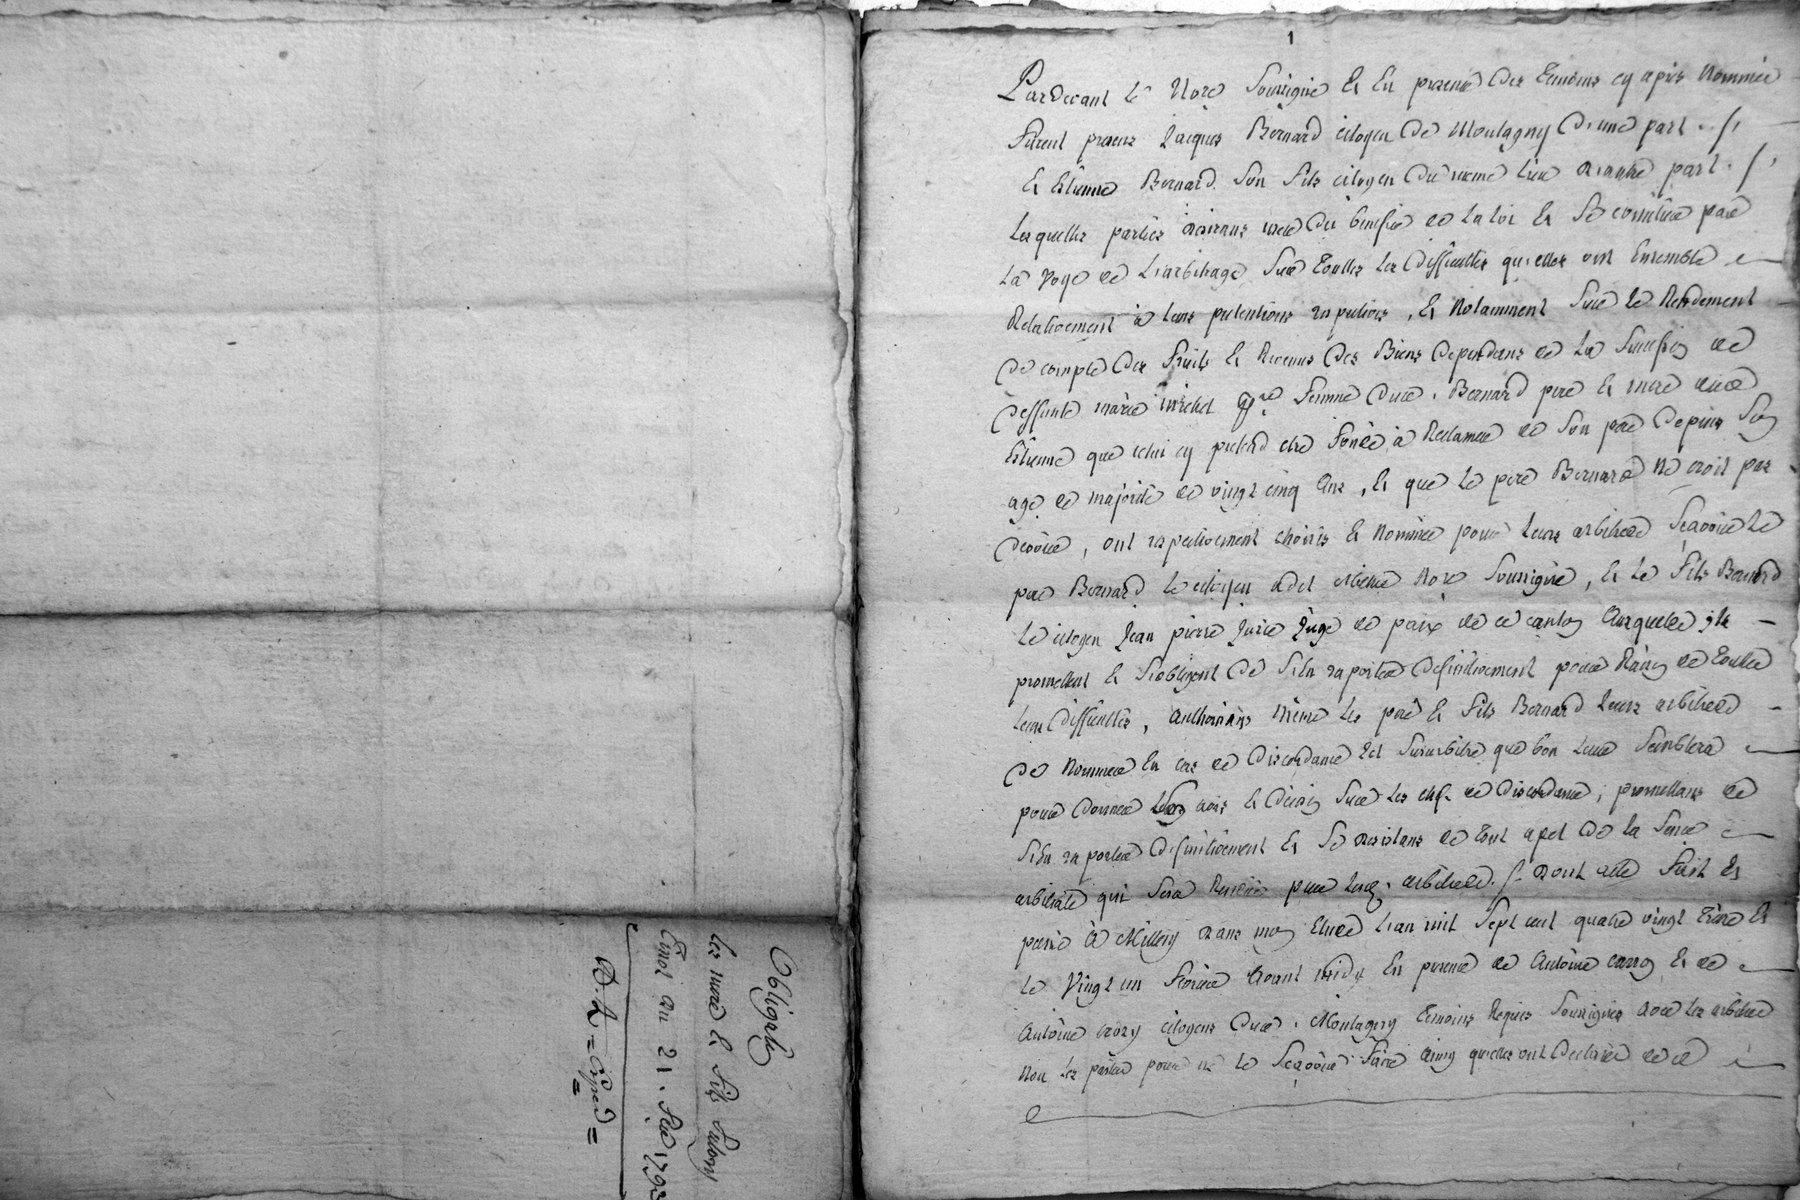 Obligé de
les mere & fils
Emol au 21. fev 1793
= Exped =
1
Pardevant le No.re soussigné & en presence des temoins cy apres nommés
furent presens Jacques Bernard citoyen de Montagny d'une part
& Etienne Bernard son fils citoyen du meme lieu d'autre part
lesquelles parties desirans user du benefice de la loi & se concilier par
la voye de l'arbitrage sur touttes les difficultés qu'elles ont ensemble
Relativement à leurs pretentions respectives, & notamment sur le Rendement
de compte des fruits & Revenus des Biens dependans de la succession de
deffunte marie michel femme dud. Bernard pere & mere dud
Etienne que celui cy pretend etre fondé à Reclamer de son pere depuis son
age de majorité de vingt cinq ans, & que le pere Bernard ne croit pas
devoir, ont respectivement choisis & nommés pour leurs arbitres sçavoir le
pere Bernard le citoyen No.re soussigné, & le fils Bernard
le citoyen Jean pierre Juge de paix de ce canton auxquels ils
promettent & s'obligent de s'en raporter definitivement pour Raison de touttes
leurs difficultés, authorisans même les pere & fils Bernard leurs arbitres
de nommer en cas de discordance tel surarbitre que bon leur semblera
pour donner avis & decision sur les chefs de discordance, promettans de
s'en raporter definitivement & se desistans de tout apel de la sentence
arbitrale qui sera Rendue par lesd. arbitres. dont acte fait &
passé à Millery dans mon etude l'an mil sept cent quatre vingt treize &
le vingt un fevrier avant midy en presence de Antoine & de
Antoine citoyens dud. Montagny temoins Requis soussignés avec les arbitres
non les parties pour ne le sçavoir faire ainsy qu'elles ont declaré de ce